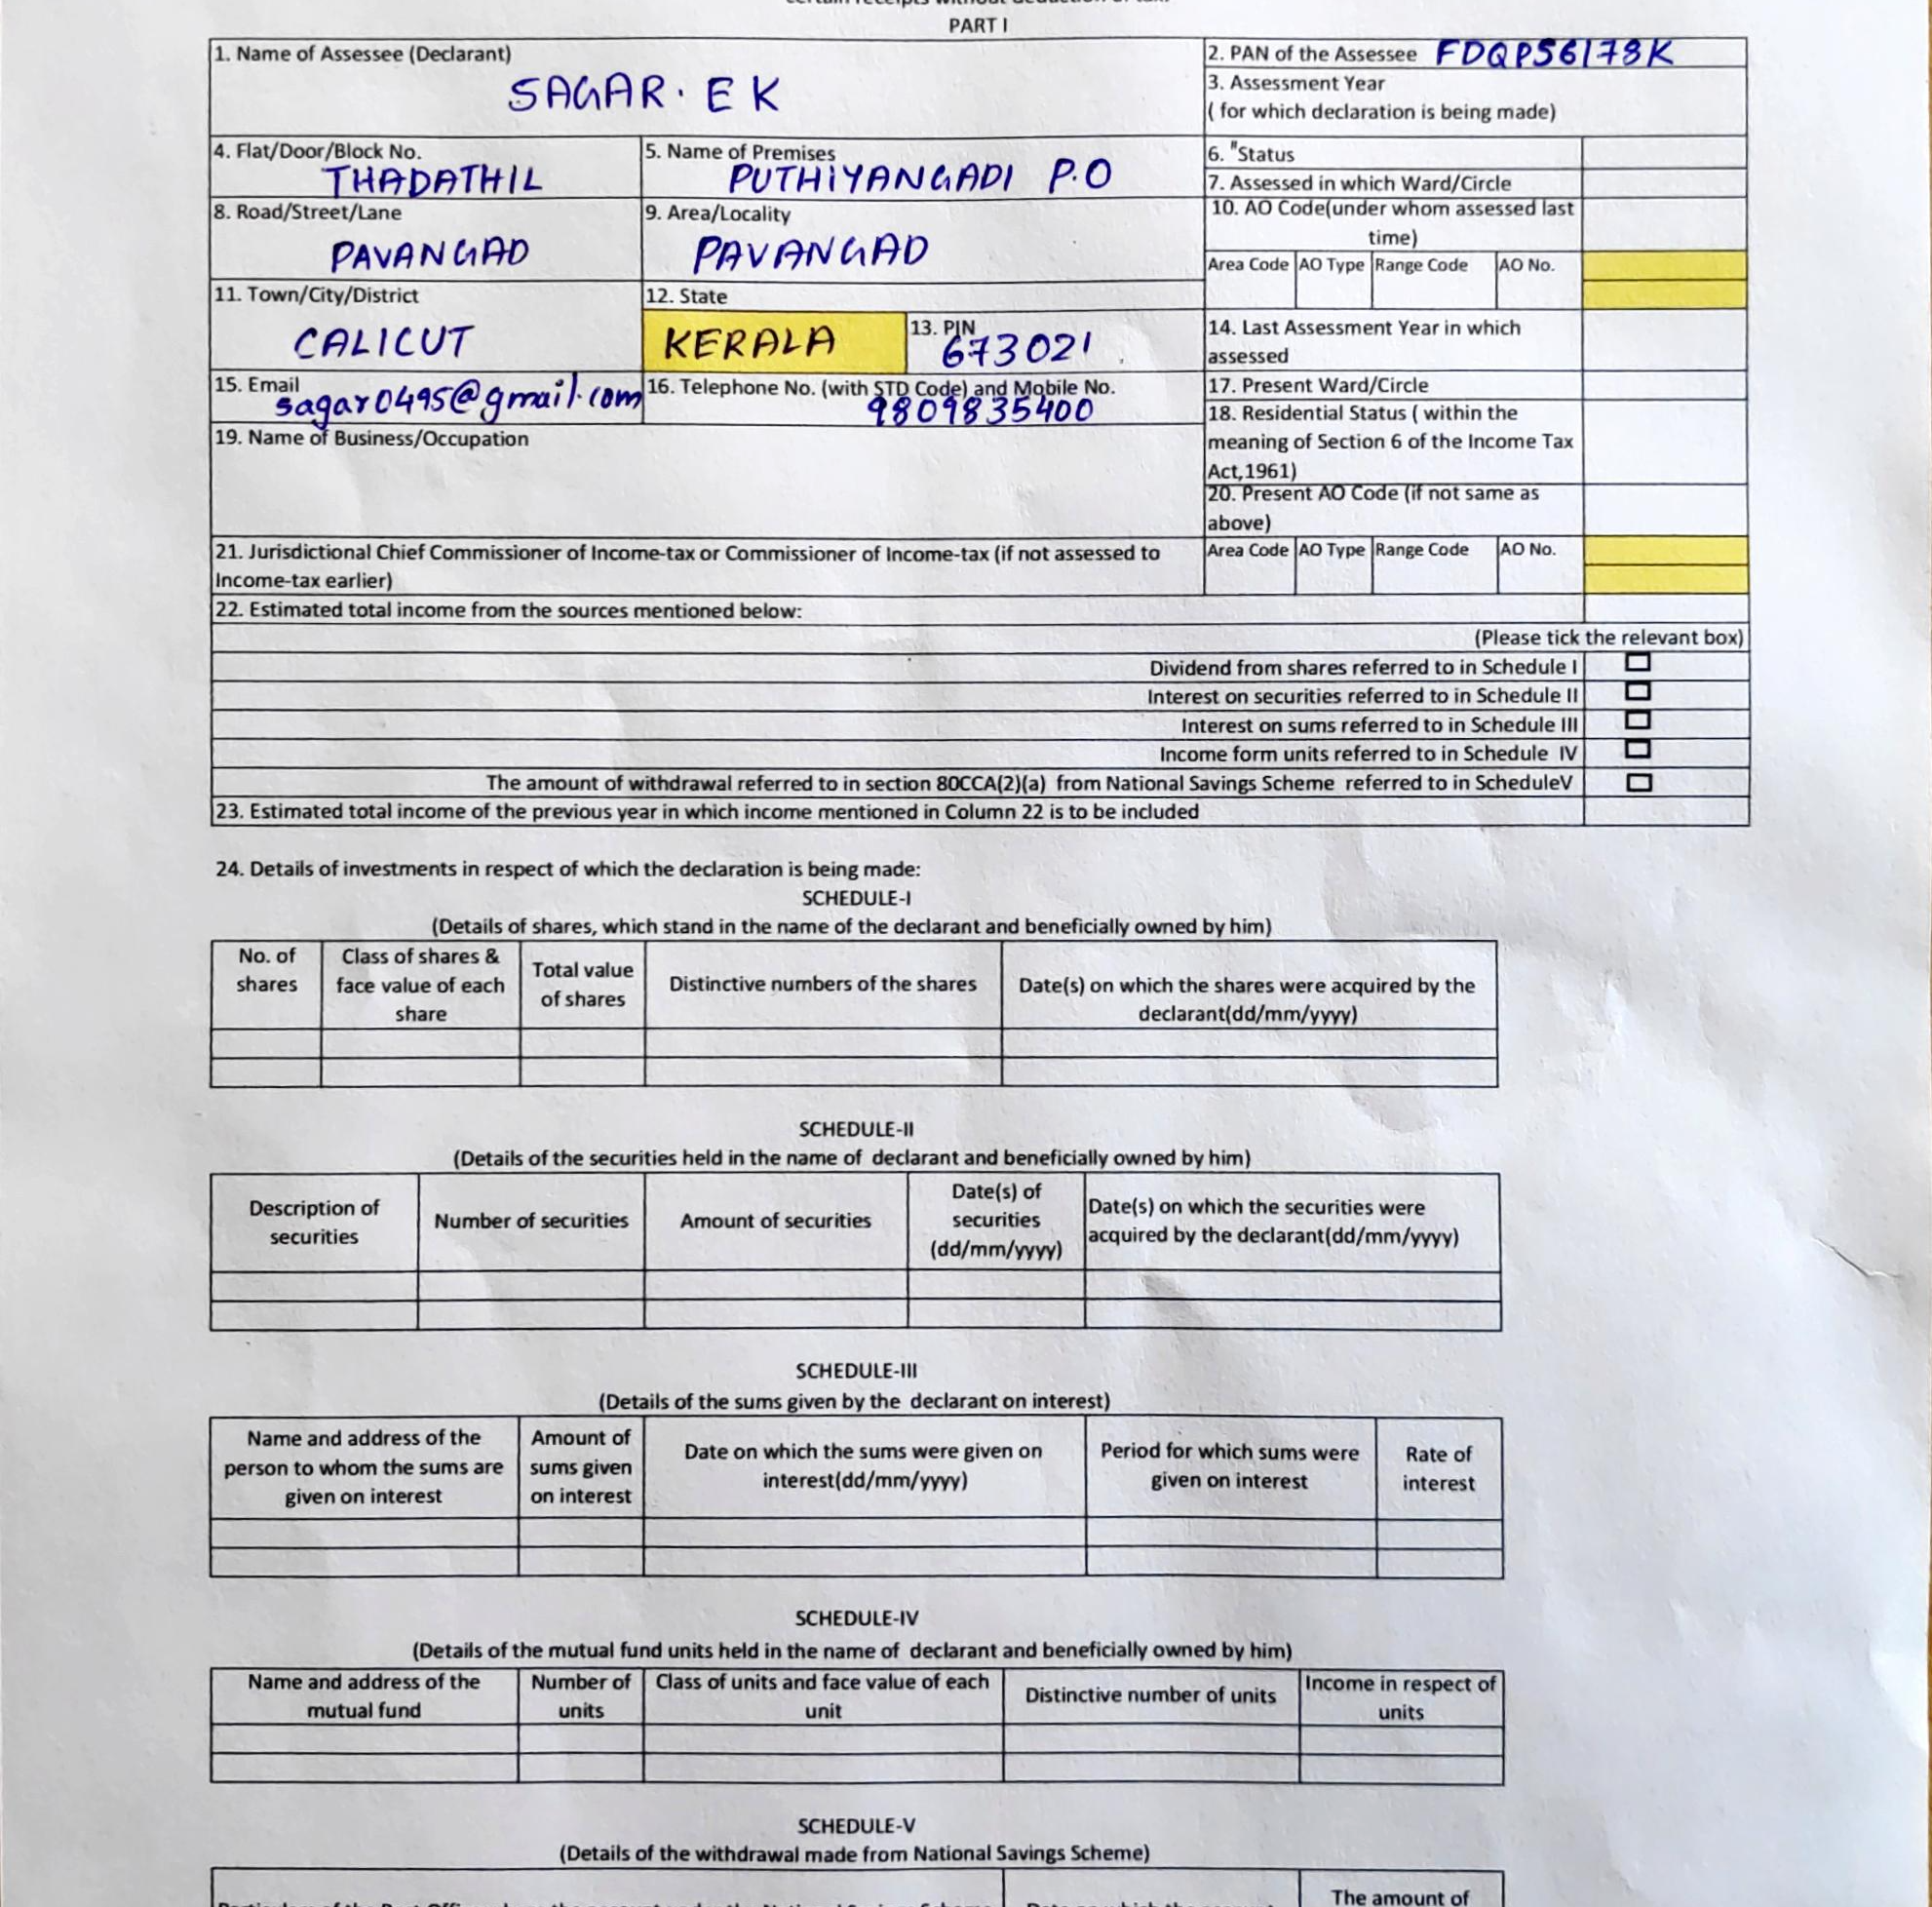 PART I
1. Name of Assessee (Declarant)
SAGAR. E K
2. PAN of the Assessee FDQPS6178K
3. Assessment Year
( for which declaration is being made)
4. Flat/Door/Block No.
THADATHIL
5. Name of Premises
PUTHIYANGADI P.O
6. #Status
7. Assessed in which Ward/Circle
8. Road/Street/Lane
PAVANGAD
9. Area/Locality
PAVANGAD
10. AO Code(under whom assessed last
time)
Area Code AO Type Range Code AO No.
11. Town/City/District
CALICUT
12. State
KERALA
13. PIN
673021
14. Last Assessment Year in which
assessed
15. Email
sagar0495@gmail.com
16. Telephone No. (with STD Code) and Mobile No.
9809835400
17. Present Ward/Circle
18. Residential Status ( within the
meaning of Section 6 of the Income Tax
Act,1961)
19. Name of Business/Occupation
20. Present AO Code (if not same as
above)
21. Jurisdictional Chief Commissioner of Income-tax or Commissioner of Income-tax (if not assessed to
Income-tax earlier)
Area Code AO Type Range Code AO No.
22. Estimated total income from the sources mentioned below:
(Please tick the relevant box)
Dividend from shares referred to in Schedule I
Interest on securities referred to in Schedule II
Interest on sums referred to in Schedule III
Income form units referred to in Schedule IV
The amount of withdrawal referred to in section 80CCA(2)(a) from National Savings Scheme referred to in ScheduleV
23. Estimated total income of the previous year in which income mentioned in Column 22 is to be included
24. Details of investments in respect of which the declaration is being made:
SCHEDULE-I
(Details of shares, which stand in the name of the declarant and beneficially owned by him)
No. of
shares
Class of shares &
face value of each
share
Total value
of shares
Distinctive numbers of the shares
Date(s) on which the shares were acquired by the
declarant(dd/mm/yyyy)
SCHEDULE-II
(Details of the securities held in the name of declarant and beneficially owned by him)
Description of
securities
Number of securities
Amount of securities
Date(s) of
securities
(dd/mm/yyyy)
Date(s) on which the securities were
acquired by the declarant(dd/mm/yyyy)
SCHEDULE-III
(Details of the sums given by the declarant on interest)
Name and address of the
person to whom the sums are
given on interest
Amount of
sums given
on interest
Date on which the sums were given on
interest(dd/mm/yyyy)
Period for which sums were
given on interest
Rate of
interest
SCHEDULE-IV
(Details of the mutual fund units held in the name of declarant and beneficially owned by him)
Name and address of the
mutual fund
Number of
units
Class of units and face value of each
unit
Distinctive number of units
Income in respect of
units
SCHEDULE-V
(Details of the withdrawal made from National Savings Scheme)
The amount of